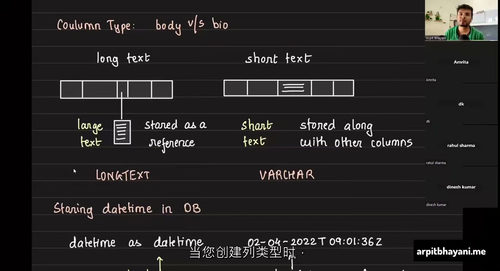 Coulumn Type: body v/s bio
long text
short text
large text
stared as a reference
short text
stored along with other columns
LONGTEXT
VARCHAR
Storing datetime in DB
datetime as datetime
02-04-2022T 09:01:36Z
当您创建列类型时
Amrita
dk
rahul sharma
rahul sharma
dinesh kumar
dinesh kumar
arpitbhayani.me